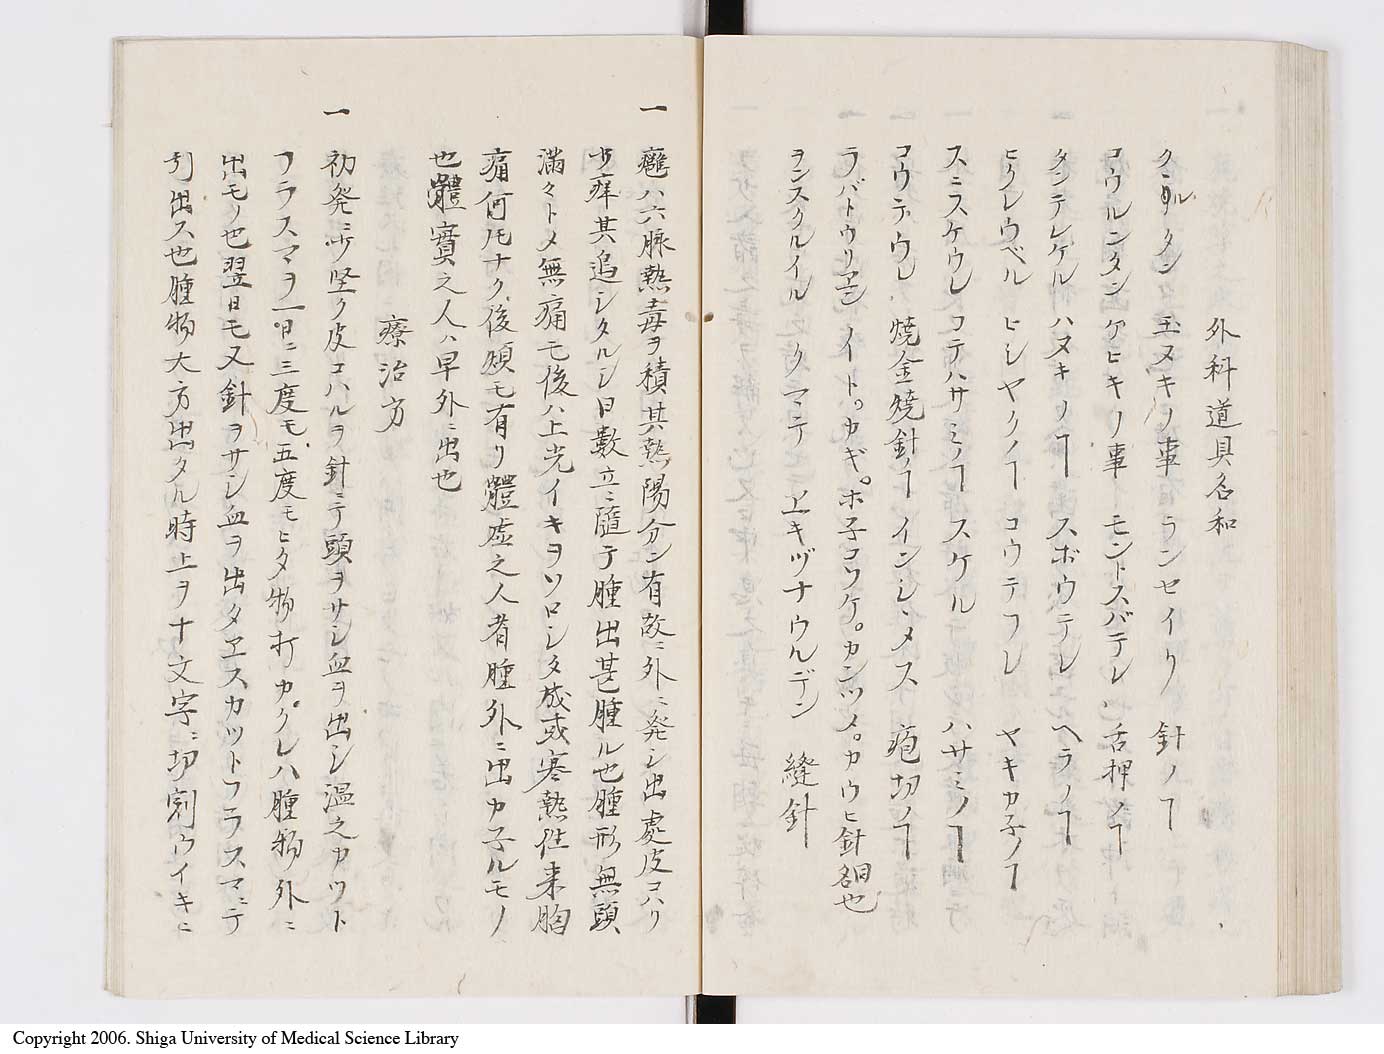 外科道具名和
玉ヌキノ事 ランセイリ 針ノヿ
コウルンタン ケヒキノ事 モントスバテレ 舌押ノヿ
タンテレケル ハヌキノヿ スボウテレ ヘラノヿ
ヒクレウベル ヒシヤクノヿ コウテフレ ヤキカネノヿ
スニスケウレ コテハサミノヿ スケルテ ハサミノヿ
コウテウレ 焼金焼針ノヿ インシヽメス 疱切ノヿ
ラバトウリアン ノイト。カギ。ホ子コソケ。カンツメ。カウヒ針名曰也
ヲンスクルイル クマテ 上キヅナウルデン 縫針
一 癰ハ六脉熱毒ヲ積其熱陽分ン有故ニ外ニ発シ出處皮コハリ
少痒其追シタルシ日數立ニ隨テ腫出甚腫ル也腫形無頭
滿々トメ無痛モ後ハ上光イキヲソロシタ成或寒熱往来胸
痛何モナク後煩モ有リ體虚之人者腫外ニ出カ子ルモノ
也體實之人ハ早外ニ出也
療治方
一 初発ニ少堅ク皮コハルヲ針ニテ頭ヲサシ血ヲ出シ温之カツト
フラスマヲ一日ニ三度モ五度モヒタ物打カクレハ腫物外ニ
出モノ也翌日モ又針ヲサシ血ヲ出タヱスカツトフラスマニテ
引出ス也腫物大方出タル時上ヲ十文字ニ切割ウイキニ
Copyright 2006. Shiga University of Medical Science Library